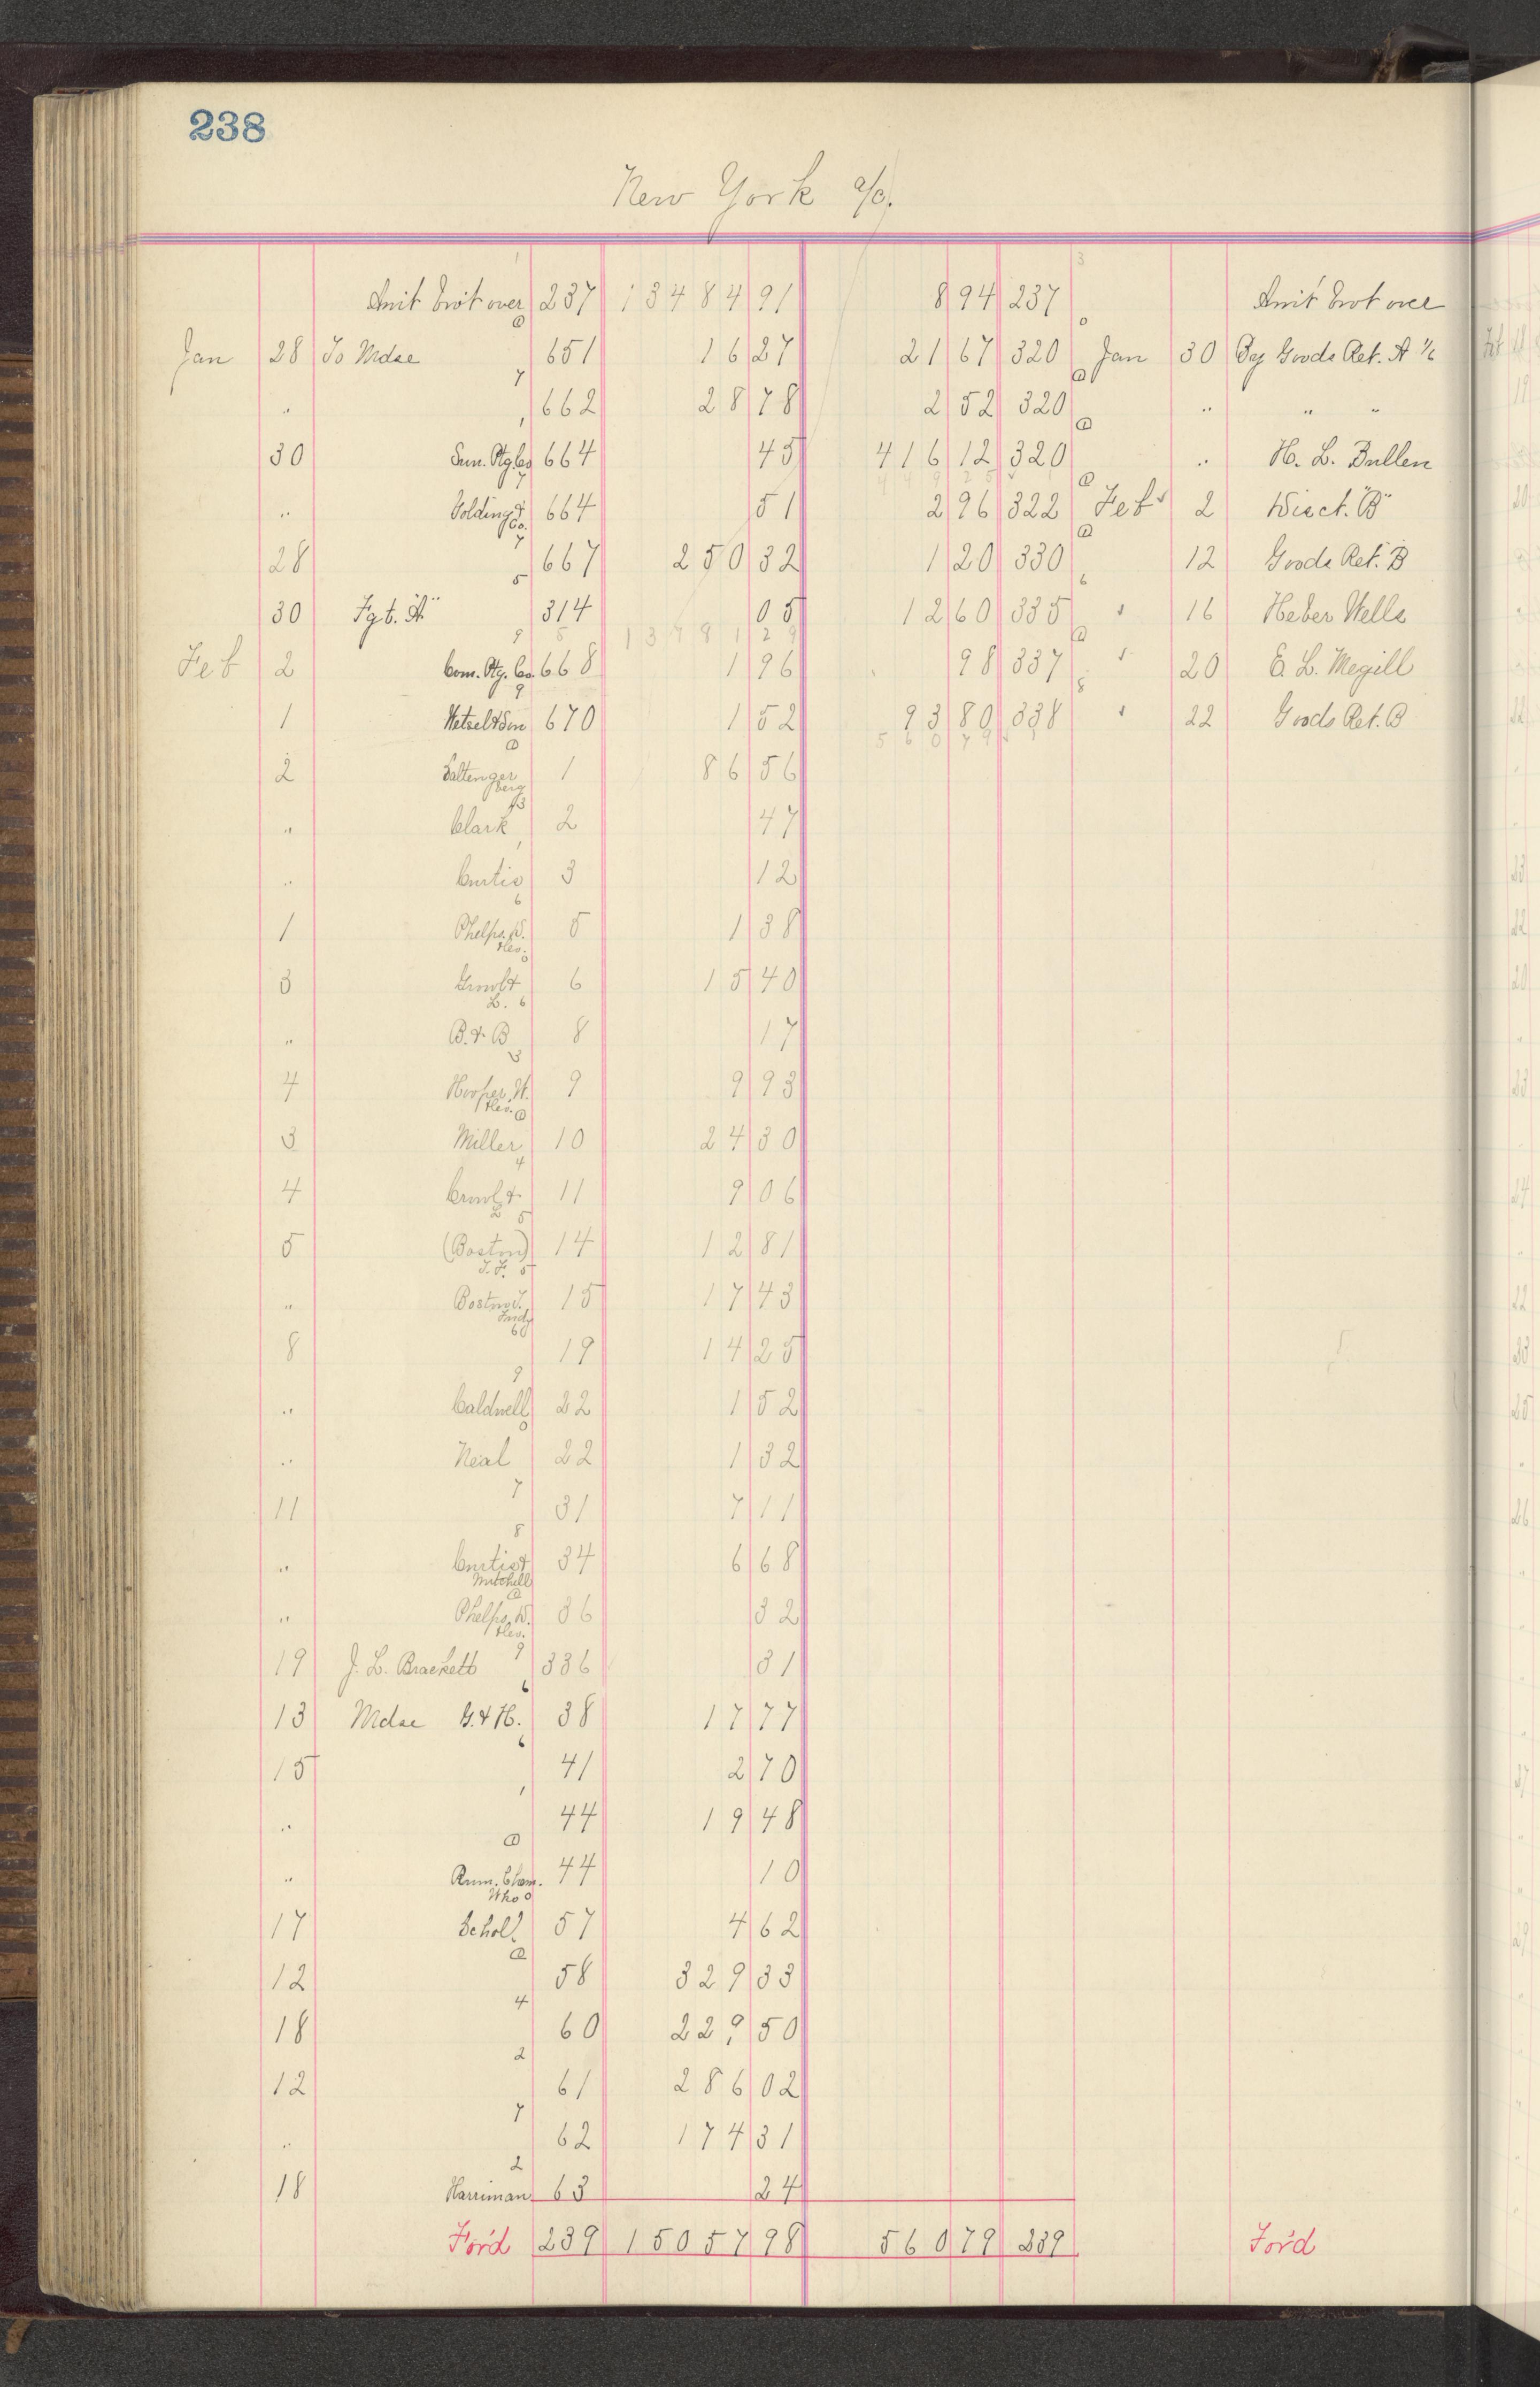 238
New York a/c.
Amt brot over 237 13484 91 8 94 237 Amt brot over
Jan 28 To Mdse 651 16 27 21 67 320 Jan 30 By Goods Ret. A
" 662 28 78 2 52 320 " " "
30 Sun. Ptg. Co 664 45 416 12 320 " H. L. Bullen
" Golding & Co. 664 51 2 96 322 Feb 2 Disct. "B"
28 667 250 32 1 20 330 12 Goods Ret. B
30 Fgt. "A" 314 05 12 60 335 16 Heber Wells
Feb 2 Com. Ptg. Co. 668 1 96 98 337 20 E. L. Megill
1 Wetzel & Son 670 1 52 93 80 338 22 Goods Ret. B
2 1 86 56
" Clark 2 47
" Curtis 3 12
1 Phelps. D. 5 1 38
3 6 15 40
" B. & B 8 17
4 Hooper. W. 9 9 93
3 Miller 10 24 30
4 11 9 06
5 (Boston) T. F. 14 12 81
" Boston T. Fndy 15 17 43
8 19 14 25
" Caldwell 22 1 52
" Neal 22 1 32
11 31 7 11
" Curtis & Mitchell 34 6 68
" Phelps. D. 36 32
19 J. L. Brackett 336 31
13 Mdse G. & H. 38 17 77
15 41 2 70
" 44 19 48
" 44 10
17 Scholl 57 4 62
12 58 329 33
18 60 229 50
12 61 286 02
" 62 174 31
18 Harriman 63 24
For'd 239 15057 98 560 79 239 For'd